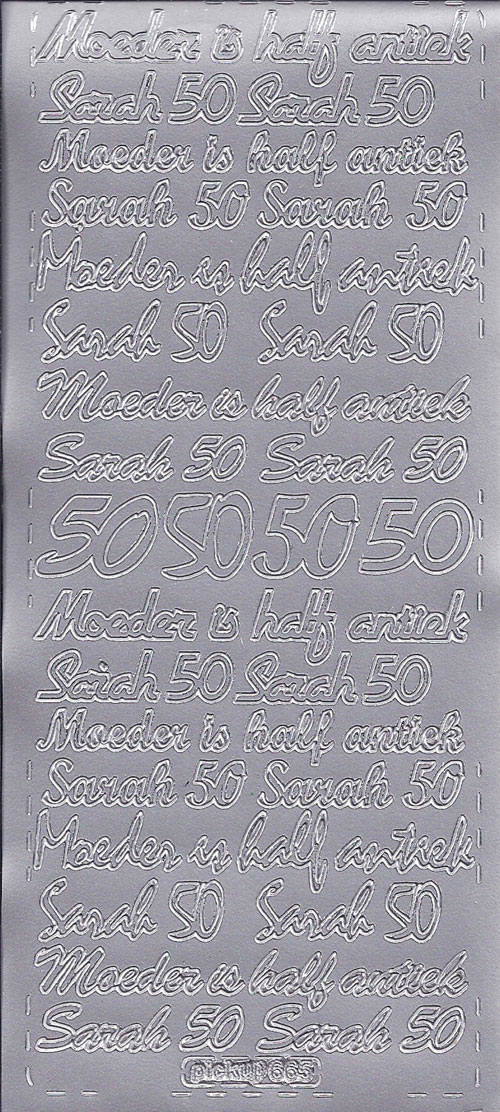 Moeder is half antiek
Sarah 50 Sarah 50
Moeder is half antiek
Sarah 50 Sarah 50
Moeder is half antiek
Sarah 50 Sarah 50
Moeder is half antiek
Sarah 50 Sarah 50
50 50 50 50
Moeder is half antiek
Sarah 50 Sarah 50
Moeder is half antiek
Sarah 50 Sarah 50
Moeder is half antiek
Sarah 50 Sarah 50
Moeder is half antiek
Sarah 50 Sarah 50
pickup 665